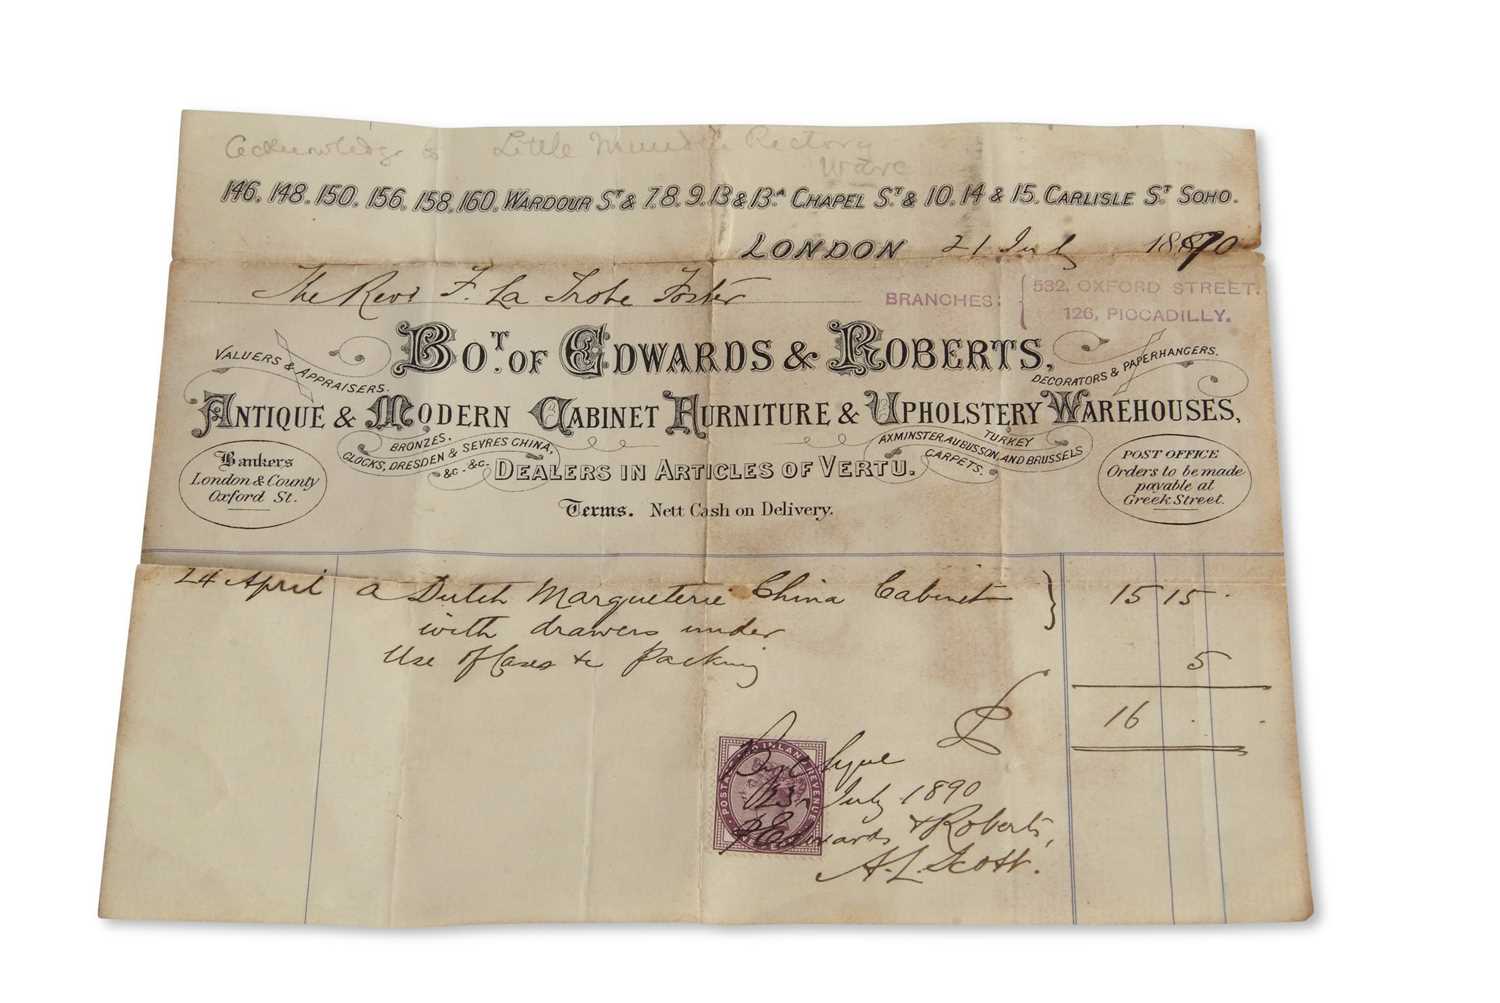 Acknowledge to Little Munden Rectory
Ware
146. 148. 150. 156. 158. 160. WARDOUR ST. & 7. 8. 9. 13 & 13A CHAPEL ST. & 10. 14 & 15. CARLISLE ST. SOHO.
LONDON 21 July 1890
The Revd F. La Trobe Foster
BRANCHES: 532, OXFORD STREET.
126, PICCADILLY.
VALUERS & APPRAISERS.
BOT. OF EDWARDS & ROBERTS,
DECORATORS & PAPERHANGERS.
ANTIQUE & MODERN CABINET FURNITURE & UPHOLSTERY WAREHOUSES,
BRONZES,
CLOCKS, DRESDEN & SEVRES CHINA,
&c. &c.
DEALERS IN ARTICLES OF VERTU.
TURKEY
AXMINSTER, AUBUSSON, AND BRUSSELS
CARPETS.
Bankers
London & County
Oxford St.
POST OFFICE
Orders to be made
payable at
Greek Street.
Terms. Nett Cash on Delivery.
24 April a Dutch Marqueterie China Cabinet } 15 15 .
with drawers under
Use of Cases & Packing 5
£ 16 . .
POSTAGE & INLAND REVENUE
By Cheque
23 July 1890
p Edwards & Roberts,
A. L. Scott.